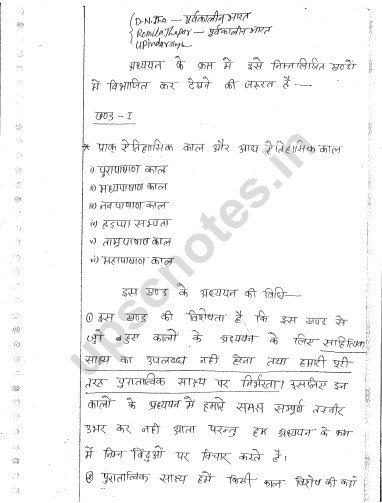 D.N. Jha – पूर्वकालीन भारत
Romila Thapar – पूर्वकालीन भारत
Upinder Singh
अध्ययन के क्रम में इसे निम्नलिखित खण्डों
में विभाजित कर देखने की जरूरत है –
खण्ड – I
* प्राक् ऐतिहासिक काल और आद्य ऐतिहासिक काल
i) पुरापाषाण काल
ii) मध्यपाषाण काल
iii) नवपाषाण काल
iv) हड़प्पा सभ्यता
v) ताम्रपाषाण काल
vi) महापाषाण काल
इस खण्ड के अध्ययन की विधि –
① इस खण्ड की विशेषता है कि इस खण्ड से
जुड़े हुए कालों के अध्ययन के लिए साहित्यिक
साक्ष्य का उपलब्ध नहीं होना तथा हमारी पूरी
तरह पुरातात्विक साक्ष्य पर निर्भरता। इसलिए इन
कालों के अध्ययन में हमारे समक्ष सम्पूर्ण तस्वीर
उभर कर नहीं आता परन्तु हम अध्ययन के क्रम
में निम्न बिंदुओं पर विचार करते हैं।
② पुरातात्विक साक्ष्य हमें किसी काल विशेष की
upscnotes.in